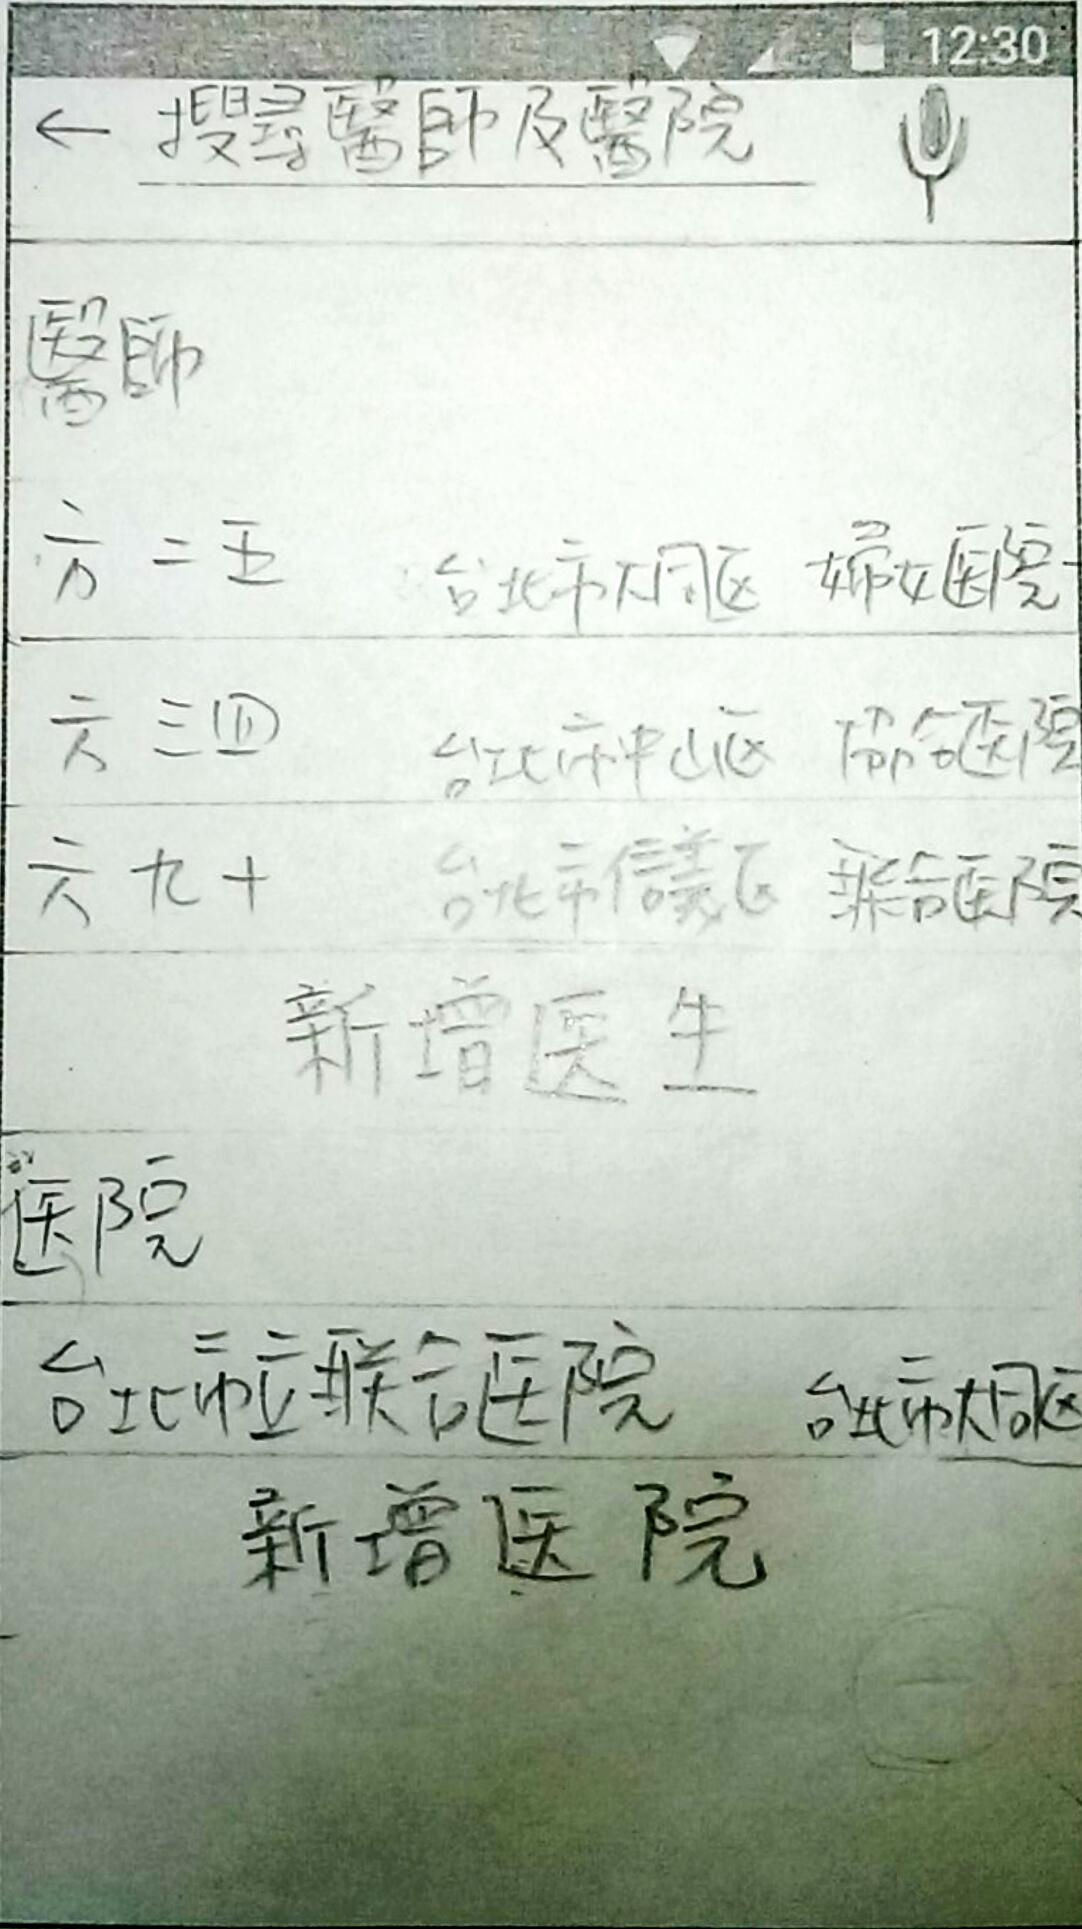 12:30
← 搜尋醫師及醫院
醫師
方二五 台北市大同区 婦女医院
六三四 台北市中山区 協合医院
六九十 台北市信義区 聯合医院
新增医生
医院
台北市立联合医院 台北市大同区
新增医院